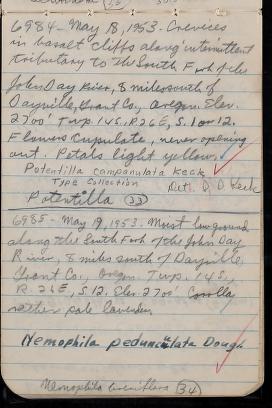 6984 - May 18, 1953. Crevices
in basalt cliffs along intermittent
tributary to the South Fork of the
John Day River, 8 miles south of
Dayville, Grant Co., Oregon. Elev.
2700' Twp. 14S. R26E, S. 1 or 12.
Flowers cupulate, never opening
out. Petals light yellow.
Potentilla campanulata Keck
Type Collection Det. D D Keck
Potentilla (33)
6985 - May 19, 1953. Moist low ground
along the South Fork of the John Day
River, 8 miles south of Dayville,
Grant Co., Oregon. Twp. 14S.,
R. 26E, S. 12. Elev. 2700' Corolla
rather pale lavender
Nemophila pedunculata Dougl
Nemophila breviflora (34)